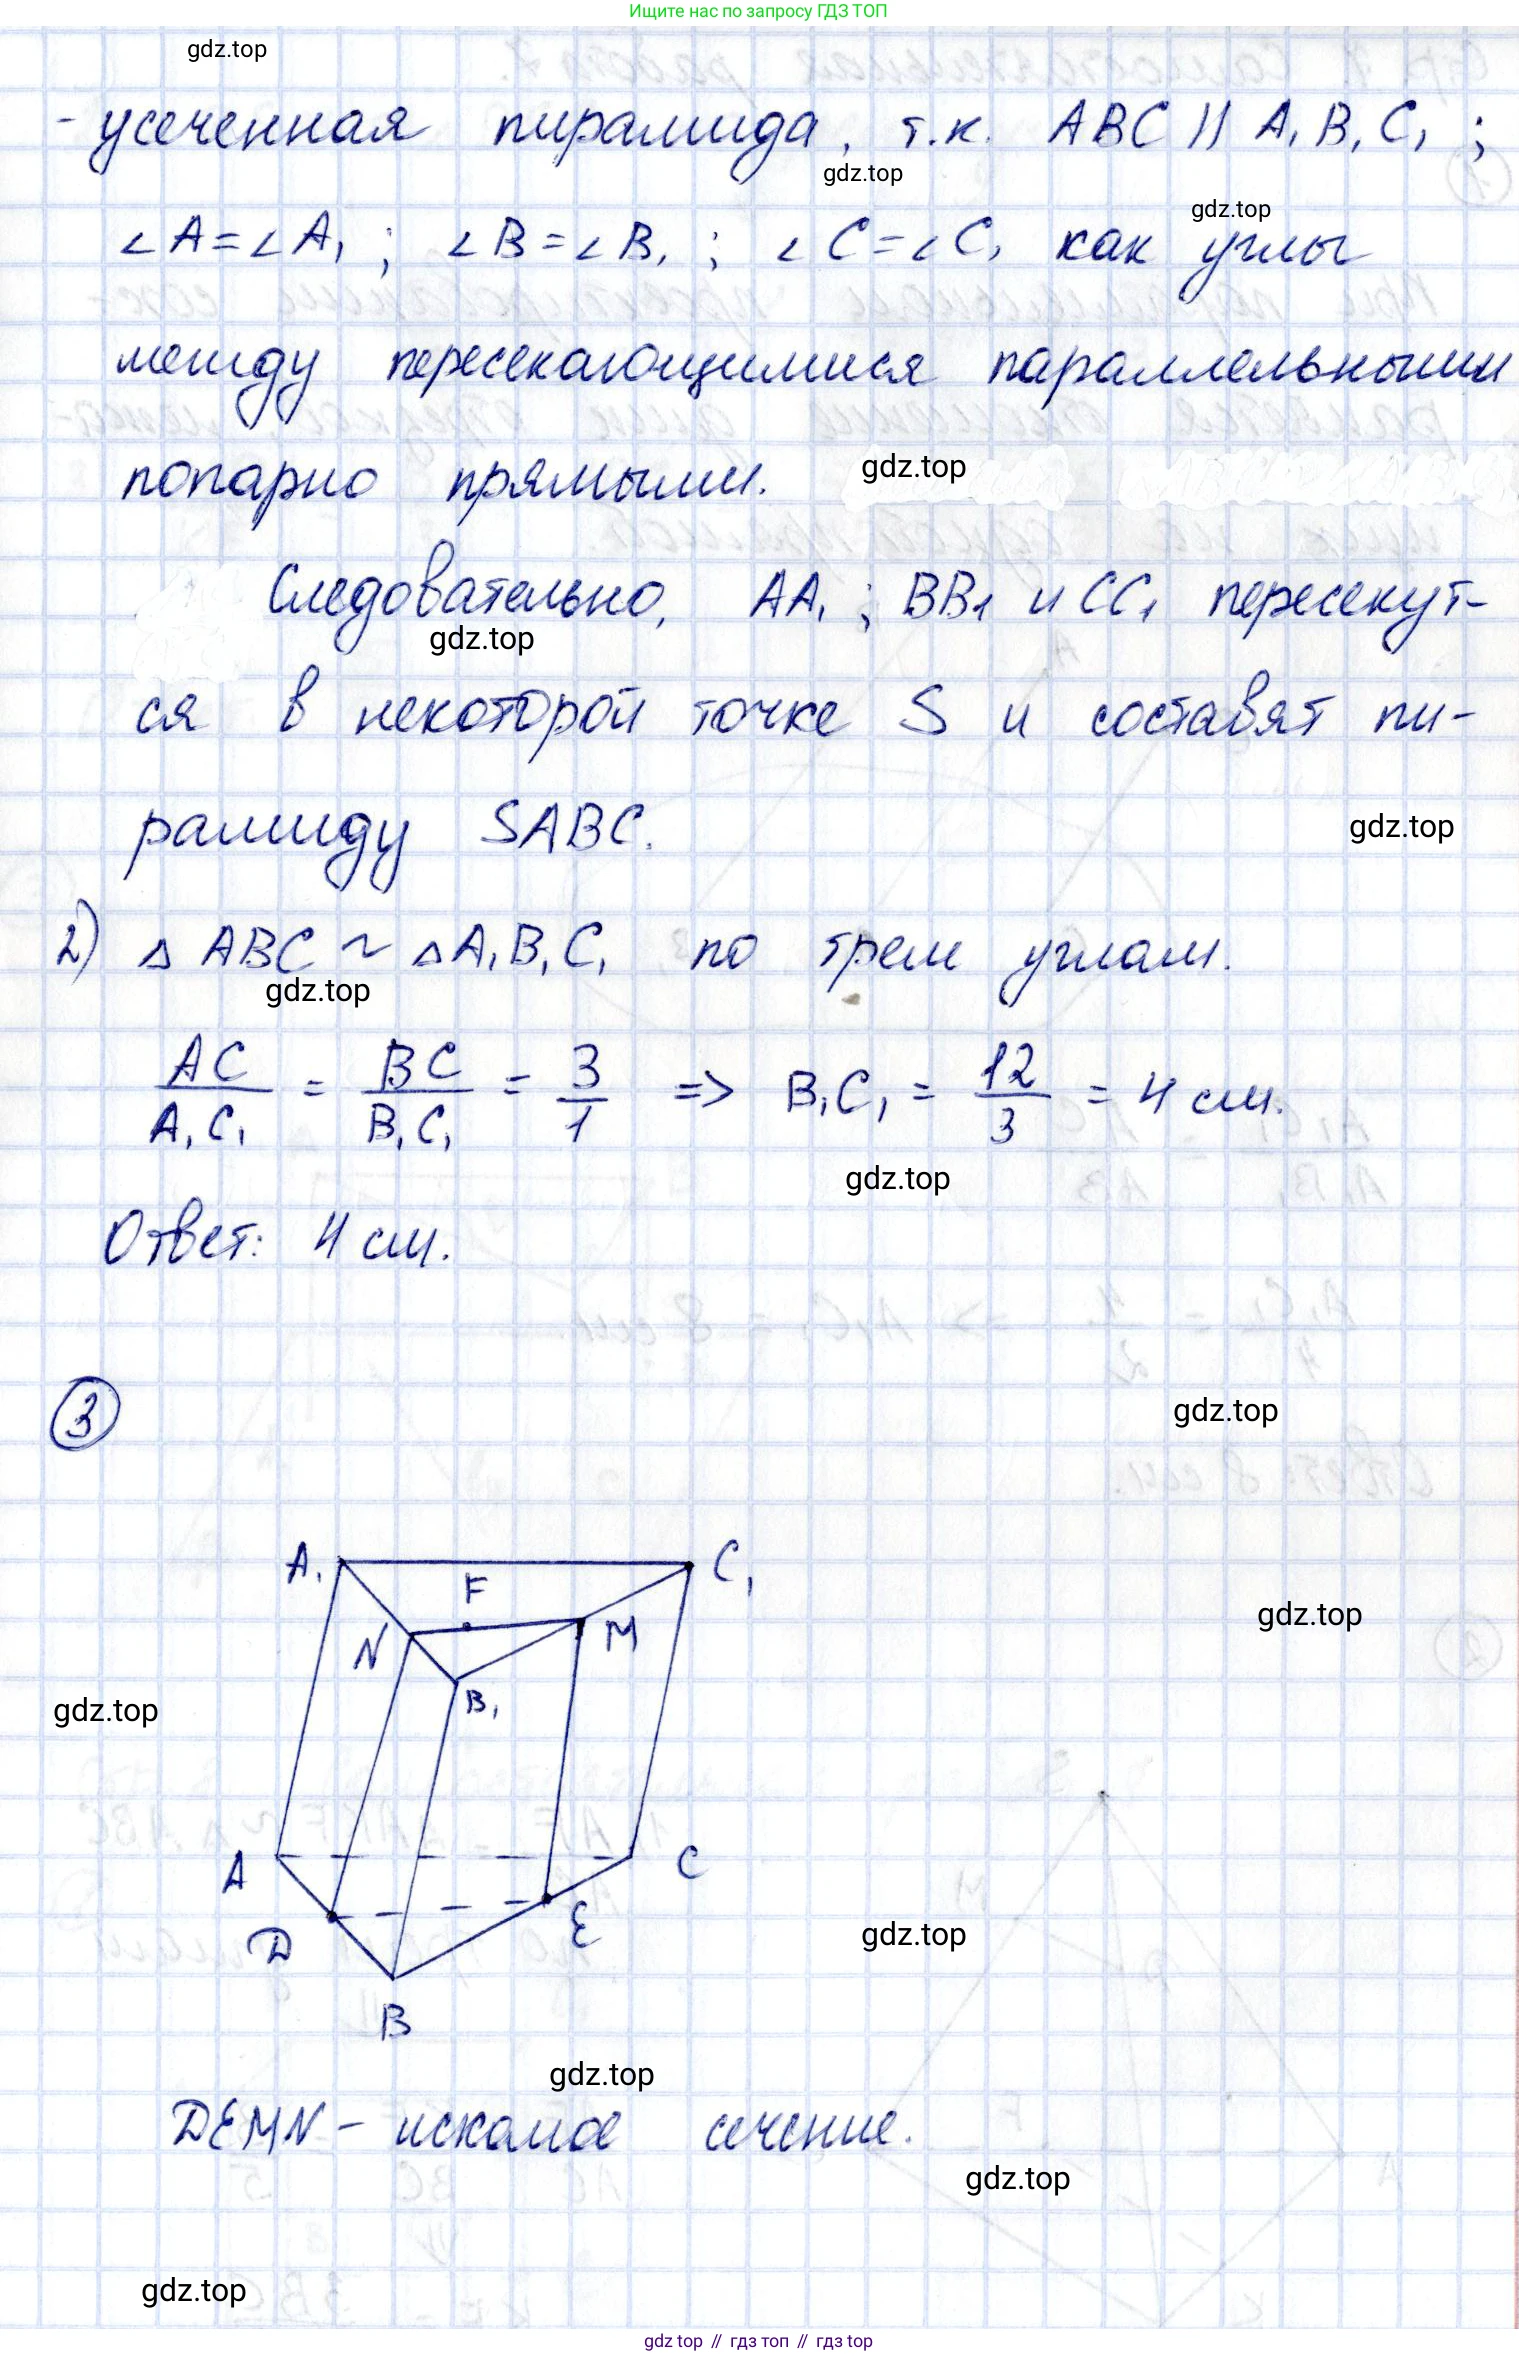 Ищите нас по запросу ГДЗ ТОП
gdz.top
- усеченная пирамида, т.к. ABC || A₁B₁C₁ ;
gdz.top
gdz.top
∠A=∠A₁ ; ∠B=∠B₁ ; ∠C=∠C₁ как углы
между пересекающимися параллельными
попарно прямыми.
gdz.top
Следовательно, AA₁ ; BB₁ и CC₁ пересекут-
gdz.top
ся в некоторой точке S и составят пи-
рамиду SABC.
gdz.top
2) △ ABC ~ △A₁B₁C₁ по трем углам.
gdz.top
AC/A₁C₁ = BC/B₁C₁ = 3/1 => B₁C₁ = 12/3 = 4 см.
gdz.top
Ответ: 4 см.
3
gdz.top
A₁ C₁
F
gdz.top
N M
B₁
gdz.top
A C
D E
gdz.top
B
gdz.top
DEMN - искомое сечение.
gdz.top
gdz.top
gdz top // гдз топ // гдз top